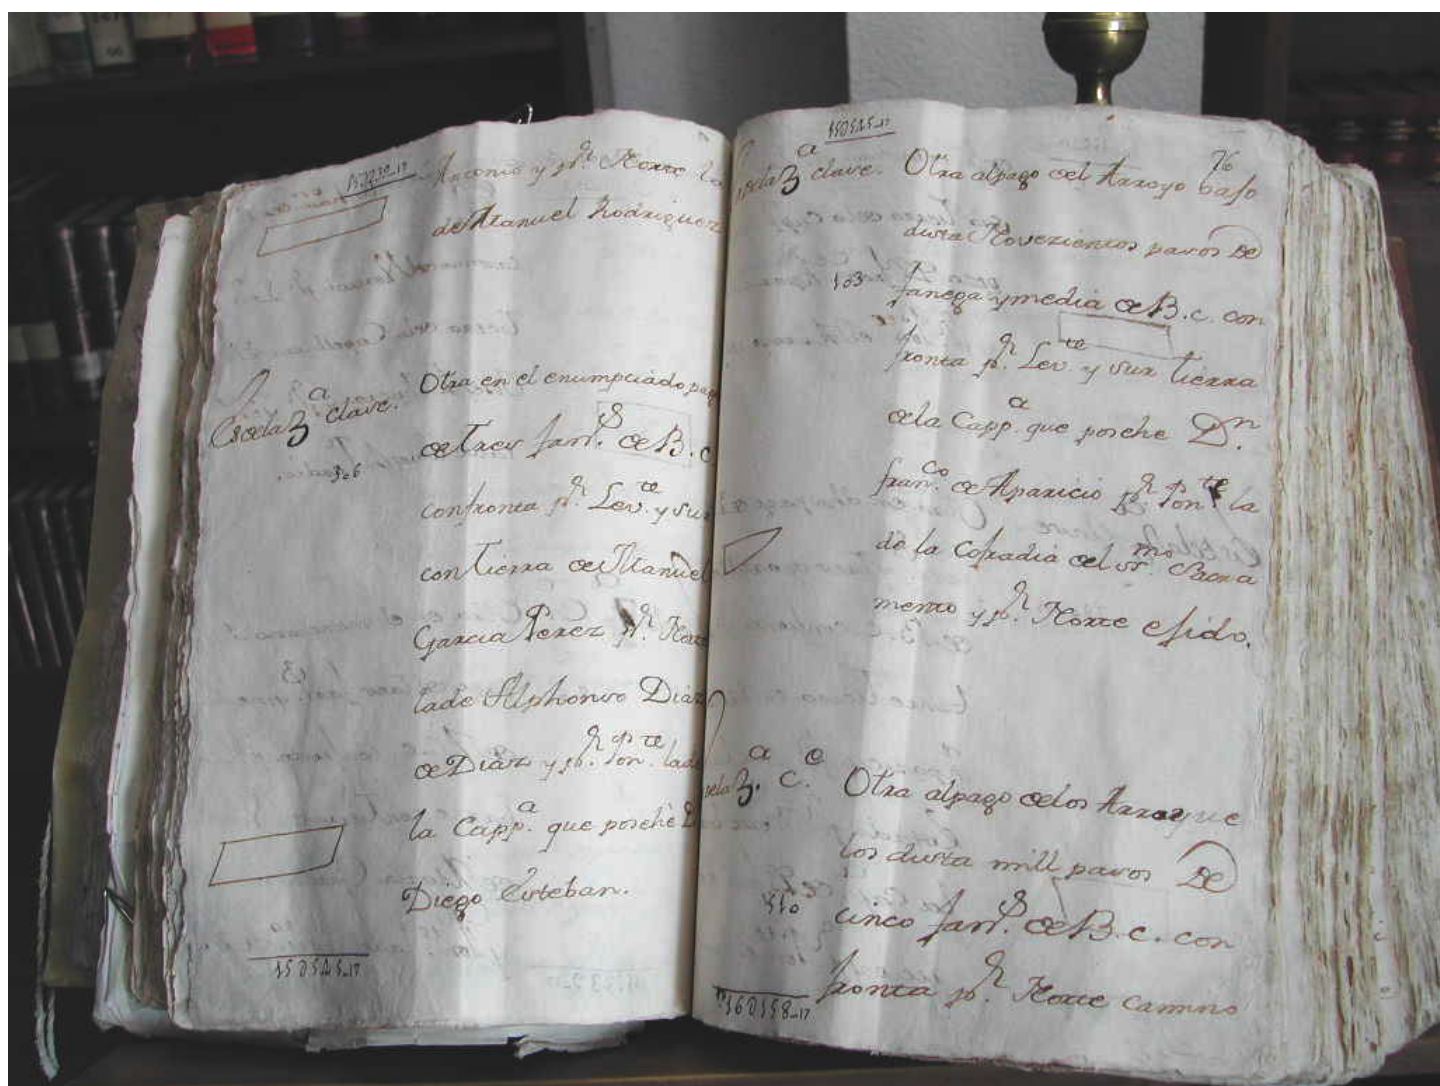 Antonio y pʳ. Norte la
de Manuel Rodriguez
Es de la 3ª clave.
Otra en el enumpciado pago
de Tres fanˢ. de B. c.
confronta pʳ. Levᵗᵉ. y Sur
con tierra de Manuel
Garcia Perez pʳ. Norte
la de Alphonso Diaz
de Diaz y pʳ. Ponᵗᵉ. la de
la Cappª. que posehe D
Diego Esteban.
76
es de la 3ª clave.
Otra al pago del Arroyo baso
dista Novezientos pasos De
fanega y media de B. c. con
fronta pʳ. Levᵗᵉ. y Sur tierra
de la Cappª. que posehe Dⁿ.
franᶜᵒ. de Aparicio pʳ. Ponᵗᵉ. la
de la Cofradia del Sᵐᵒ. Sacra
mento y pʳ. Norte esido.
es de la 3ª. cᵉ.
Otra al pago de los Arroyue
los dista mill pasos De
cinco fanˢ. de B. c. con
fronta pʳ. Norte camino